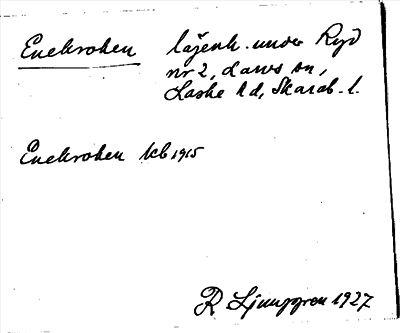 Enekroken lägenh. under Ryd
nr 2, Larvs sn,
Laske hd, Skarab. l.
Enekroken kb 1915
R Ljunggren 1927